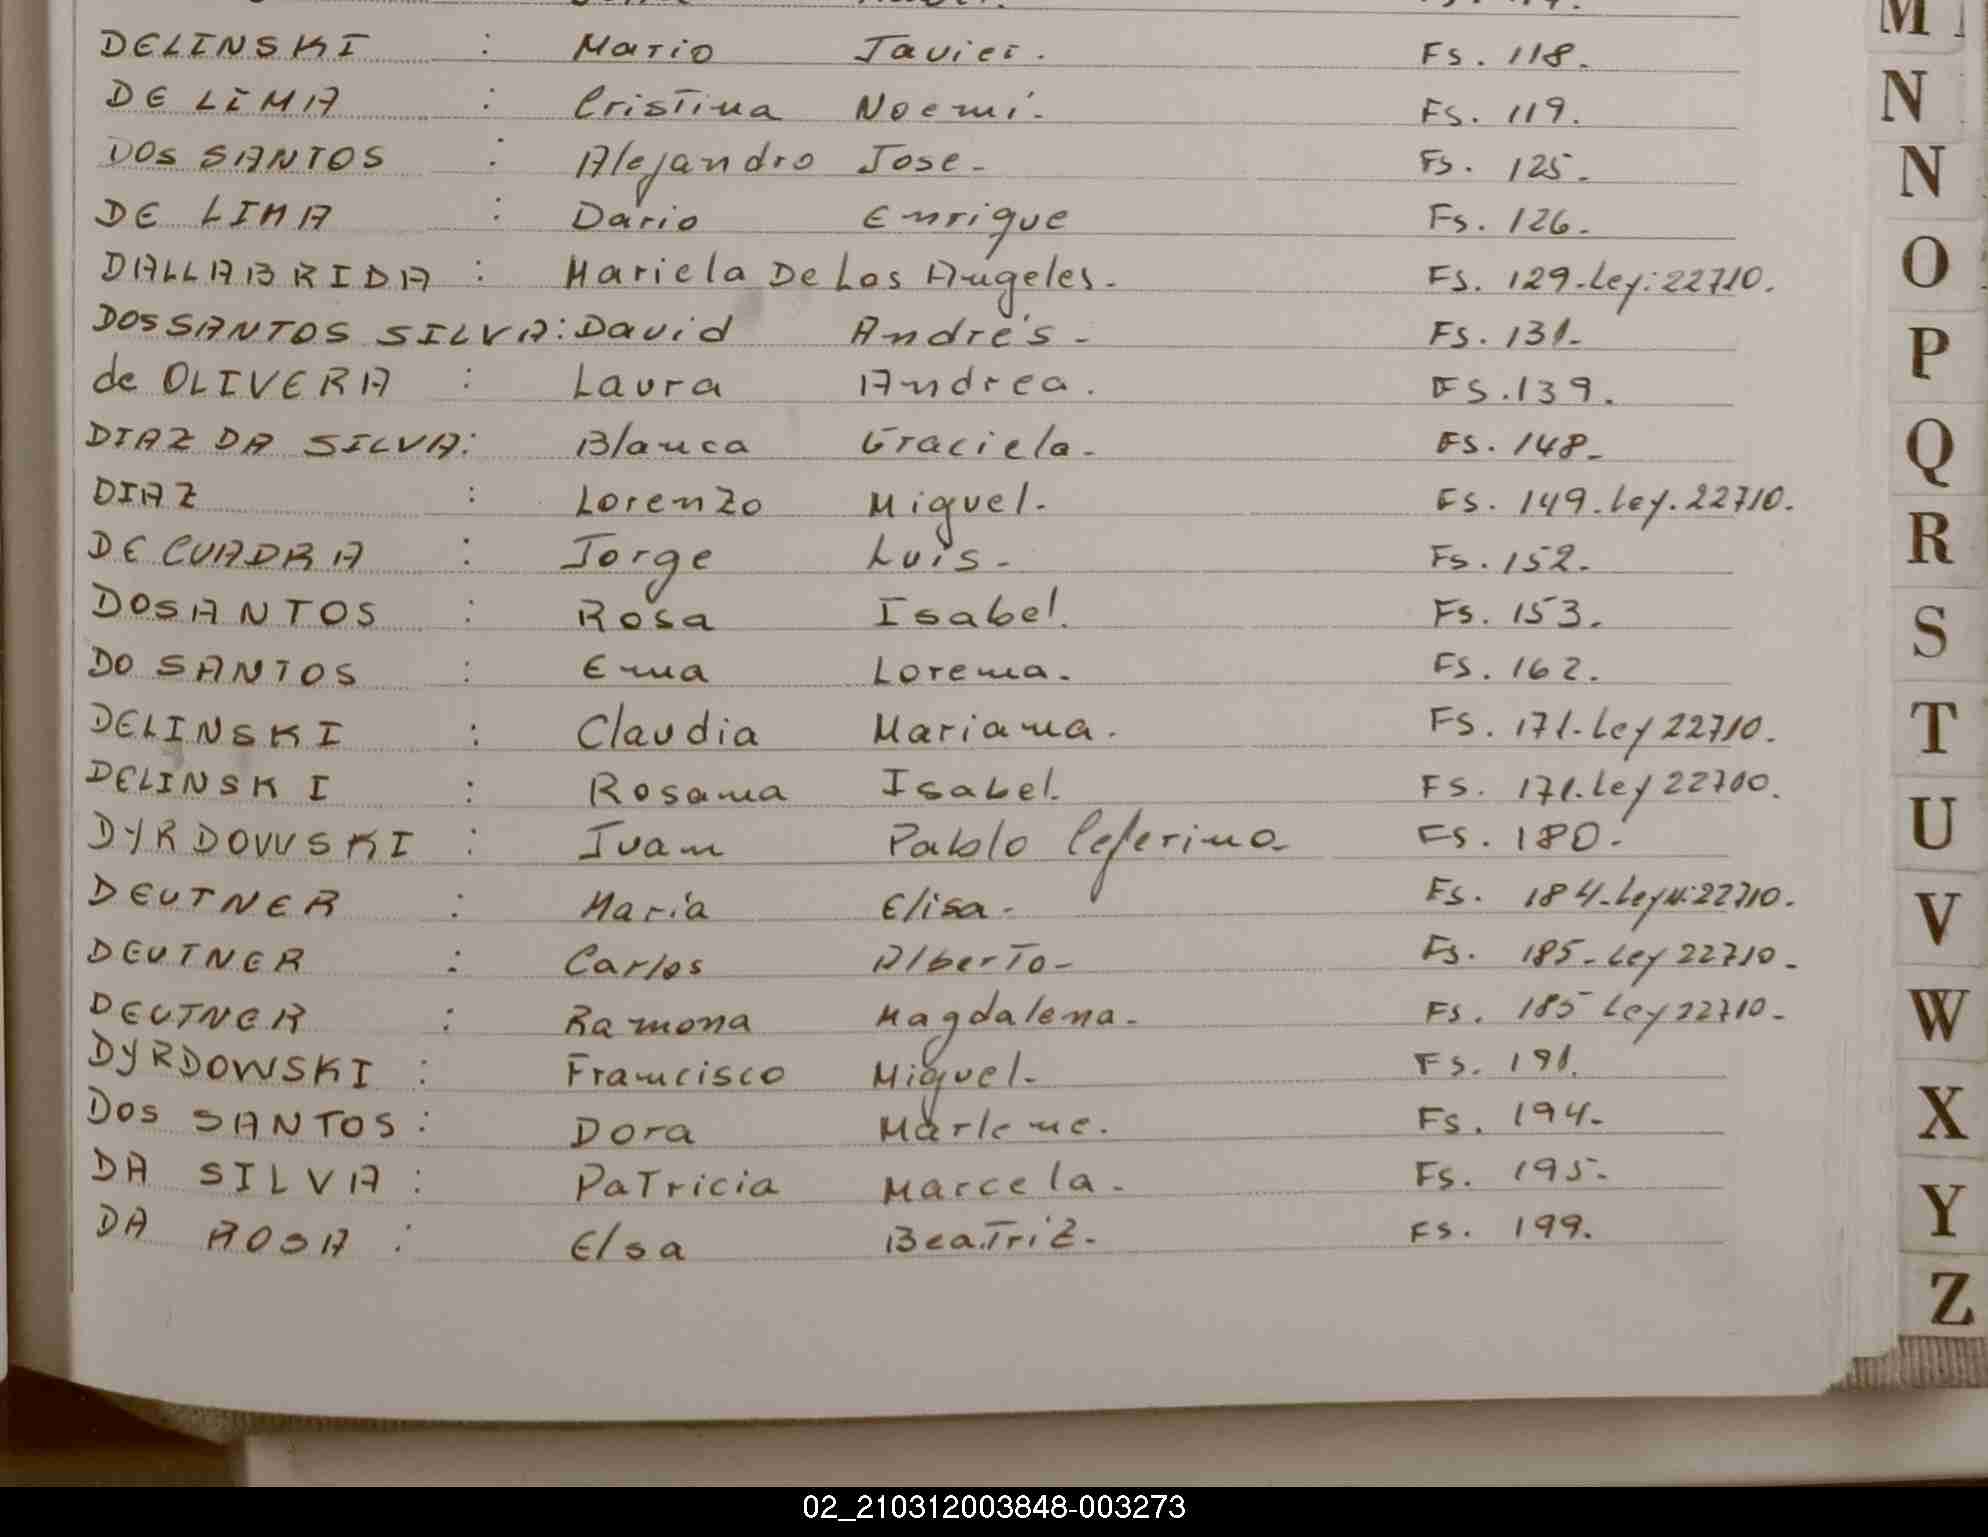 DELINSKI : Mario Javier. Fs. 118.
DE LIMA : Cristina Noemi. Fs. 119.
DOS SANTOS : Alejandro Jose- Fs. 125.
DE LIMA : Dario Enrique Fs. 126.
DALLABRIDA : Mariela De Los Angeles. Fs. 129.Ley:22710.
DOS SANTOS SILVA: David Andrés - Fs. 131.
de OLIVERA : Laura Andrea. Fs. 139.
DIAZ DA SILVA: Blanca Graciela. Fs. 148-
DIAZ : Lorenzo Miguel. Fs. 149.Ley.22710.
DE CUADRA : Jorge Luis- Fs. 152.
DOSANTOS : Rosa Isabel. Fs. 153.
DO SANTOS : Ema Lorena. Fs. 162.
DELINSKI : Claudia Mariana. Fs. 171.Ley 22710.
DELINSKI : Rosana Isabel. Fs. 171.Ley 22700.
DYRDOWSKI : Juan Pablo Ceferino- Fs. 180.
DEUTNER : María Elisa- Fs. 184-LeyN:22710.
DEUTNER : Carlos Alberto- Fs. 185-Ley 22710-
DEUTNER : Ramona Magdalena- Fs. 185 Ley 22710-
DYRDOWSKI : Francisco Miguel- Fs. 191.
DOS SANTOS : Dora Marlene. Fs. 194-
DA SILVA : Patricia Marcela. Fs. 195-
DA ROSA : Elsa Beatriz- Fs. 199.
M
N
N
O
P
Q
R
S
T
U
V
W
X
Y
Z
02_210312003848-003273